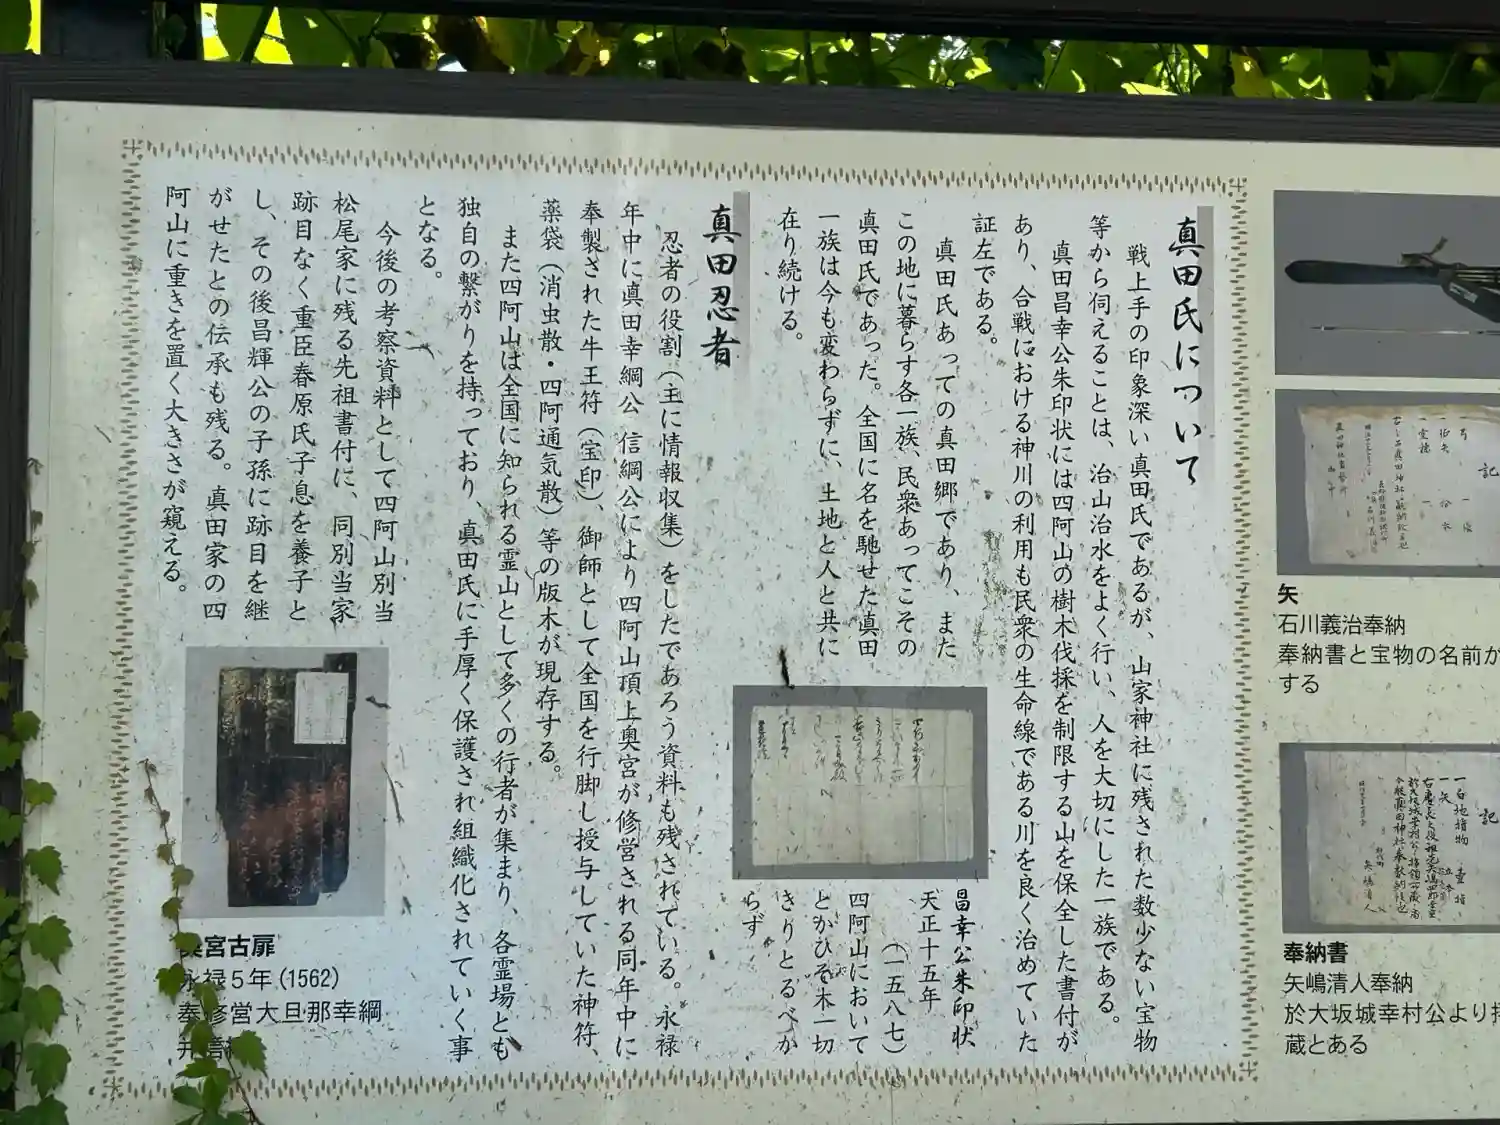 真田氏について
戦上手の印象深い真田氏であるが、山家神社に残された数少ない宝物
等から伺えることは、治山治水をよく行い、人を大切にした一族である。
真田昌幸公朱印状には四阿山の樹木伐採を制限する山を保全した書付が
あり、合戦における神川の利用も民衆の生命線である川を良く治めていた
証左である。
真田氏あっての真田郷であり、また
この地に暮らす各一族、民衆あってこその
真田氏であった。全国に名を馳せた真田
一族は今も変わらずに、土地と人と共に
在り続ける。
昌幸公朱印状
天正十五年
(一五八七)
四阿山において
とかひそ木一切
きりとるべか
らず
真田忍者
忍者の役割(主に情報収集)をしたであろう資料も残されている。永禄
年中に真田幸綱公 信綱公により四阿山頂上奥宮が修営される同年中に
奉製された牛王符(宝印)、御師として全国を行脚し授与していた神符、
薬袋(消虫散・四阿通気散)等の版木が現存する。
また四阿山は全国に知られる霊山として多くの行者が集まり、各霊場とも
独自の繋がりを持っており、真田氏に手厚く保護され組織化されていく事
となる。
今後の考察資料として四阿山別当
松尾家に残る先祖書付に、同別当家
跡目なく重臣春原氏子息を養子と
し、その後昌輝公の子孫に跡目を継
がせたとの伝承も残る。真田家の四
阿山に重きを置く大きさが窺える。
奥宮古扉
永禄5年(1562)
奉修営大旦那幸綱
矢
石川義治奉納
奉納書と宝物の名前が
する
奉納書
矢嶋清人奉納
於大坂城幸村公より
蔵とある